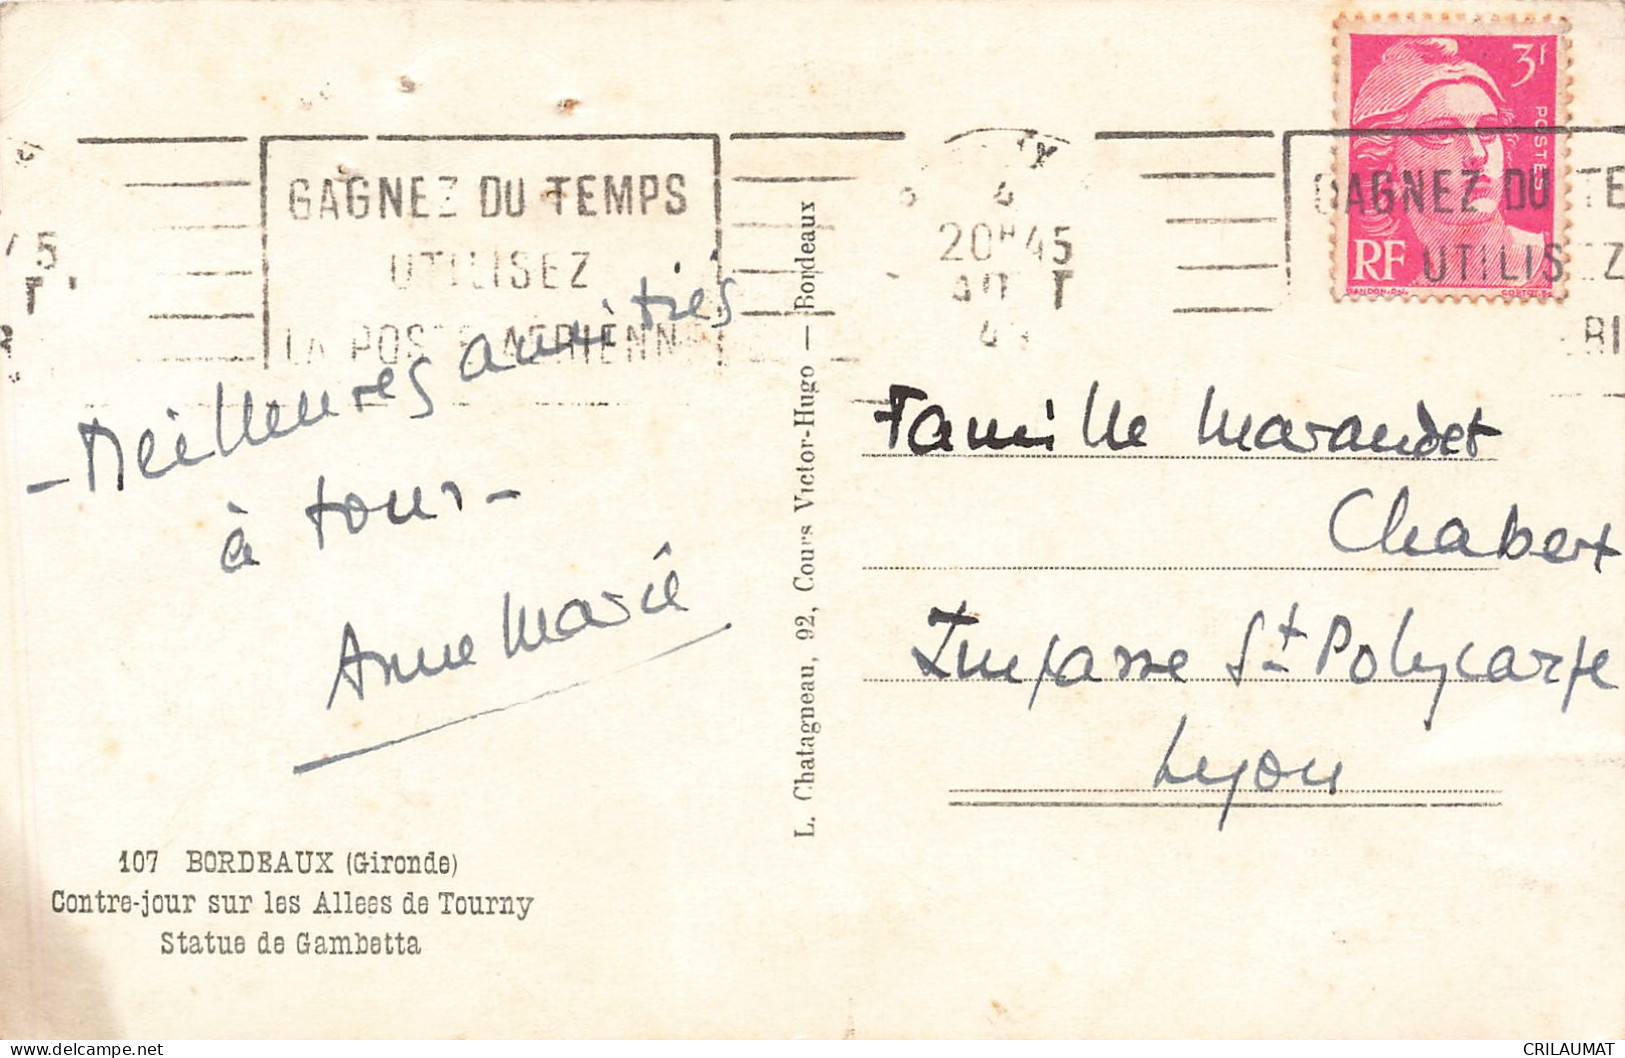 GAGNEZ DU TEMPS
UTILISEZ
LA POSTE AERIENNE
20H45
3f
POSTES
RF
GANDON
GAGNEZ DU TE
UTILISEZ
- Meilleures amitiés
à tous -
Anne Marie
L. Chatagneau, 92, Cours Victor-Hugo — Bordeaux
Famille Marandet
Chabert
Impasse St Polycarpe
Lyon
107 BORDEAUX (Gironde)
Contre-jour sur les Allees de Tourny
Statue de Gambetta
CRILAUMAT